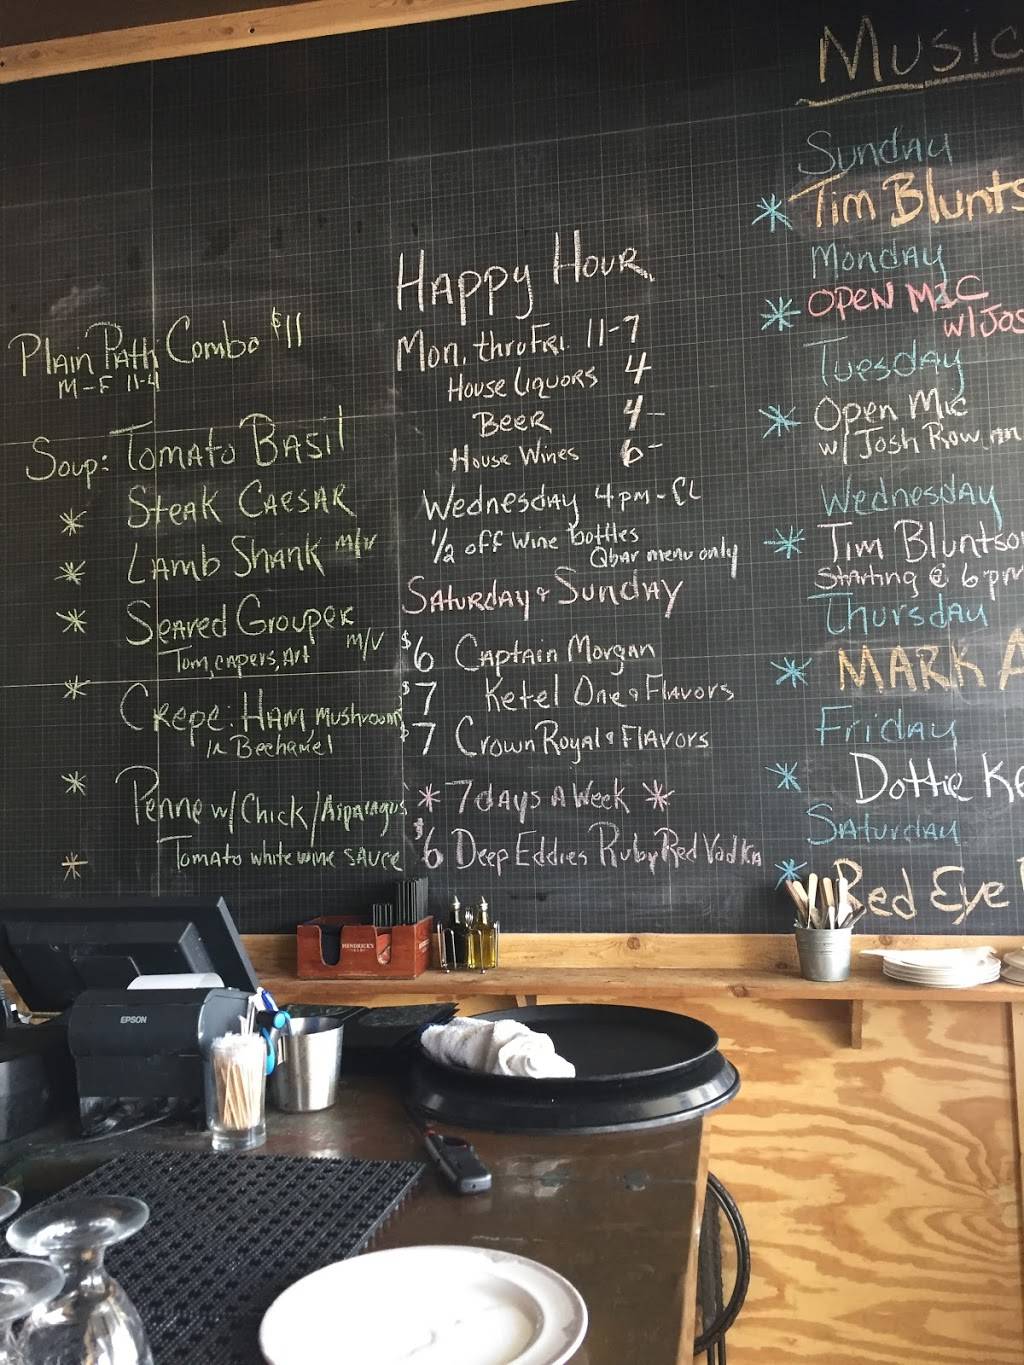 Plain Patti Combo $11
M-F 11-4
Soup: Tomato Basil
* Steak Caesar
* Lamb Shank m/v
* Seared Grouper m/v
Tom, capers, Art
* Crepe: Ham, mushrooms
in Bechamel
* Penne w/ Chick / Asparagus
* Tomato white wine sauce
Happy Hour
Mon. thru Fri. 11-7
House Liquors 4
Beer 4-
House Wines 6-
Wednesday 4pm-CL
1/2 off wine bottles
Qbar menu only
Saturday & Sunday
$6 Captain Morgan
$7 Ketel One & Flavors
$7 Crown Royal & Flavors
* 7 days A Week *
$6 Deep Eddies Ruby Red Vodka
Music
Sunday
* Tim Blunts
Monday
* Open Mic
w/ Jos
Tuesday
* Open Mic
w/ Josh Row
Wednesday
* Tim Bluntso
Starting @ 6pm
Thursday
* MARK A
Friday
* Dottie Ke
Saturday
* Red Eye
HENDRICK'S
EPSON